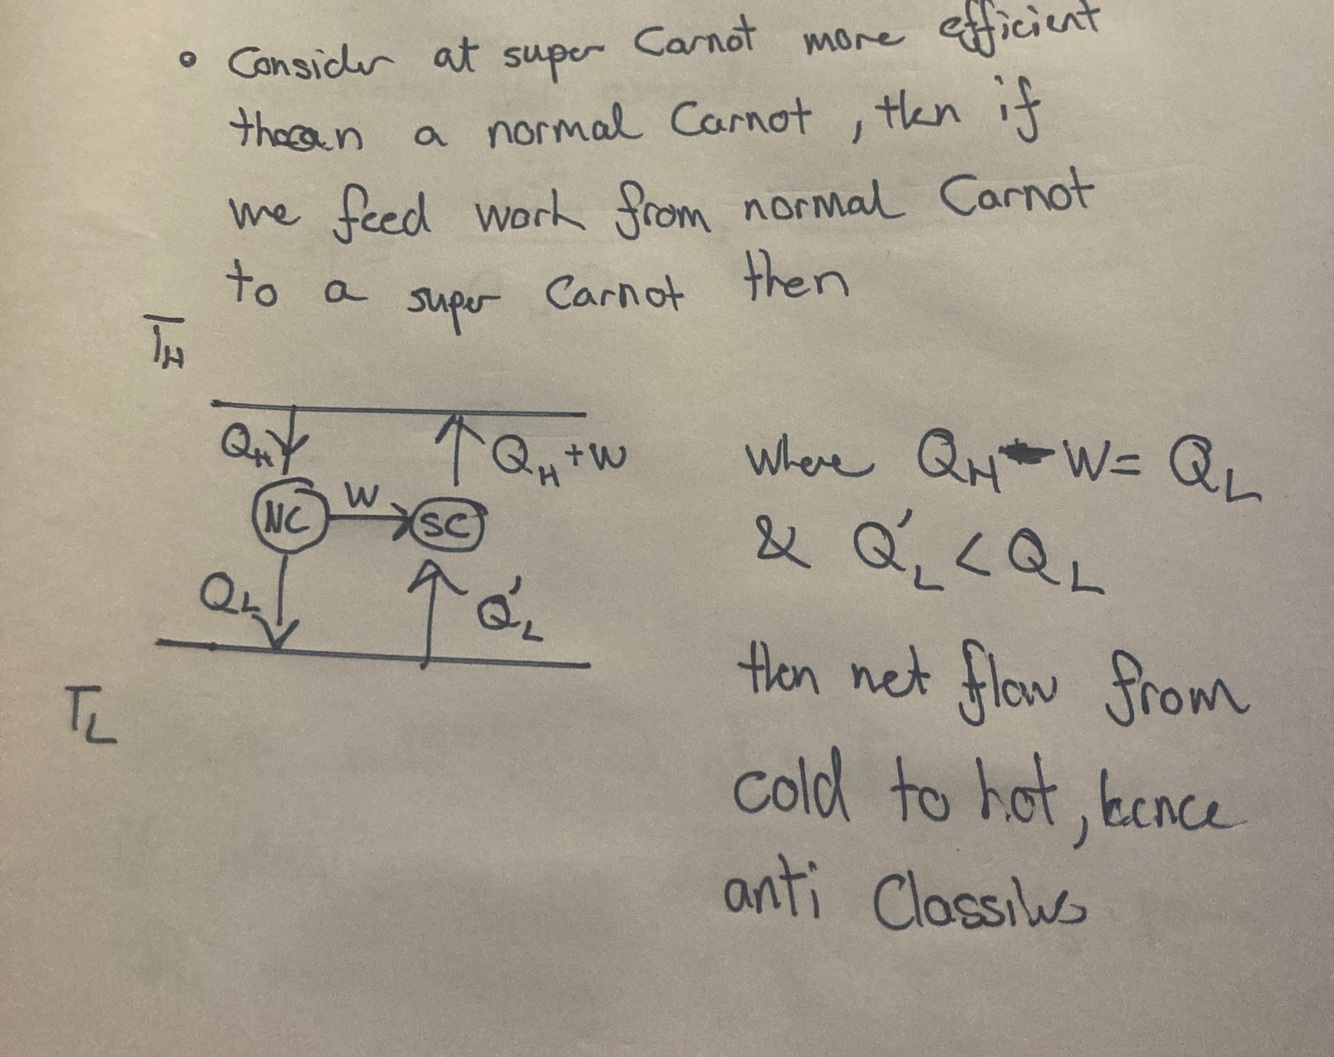 • Consider at super Carnot more efficient
than a normal Carnot, then if
we feed work from normal Carnot
to a super Carnot then
T_H
Q_H
Q_H + W
NC
W
SC
Q_L
Q'_L
T_L
where Q_H - W = Q_L
& Q'_L < Q_L
then net flow from
cold to hot, hence
anti Classius